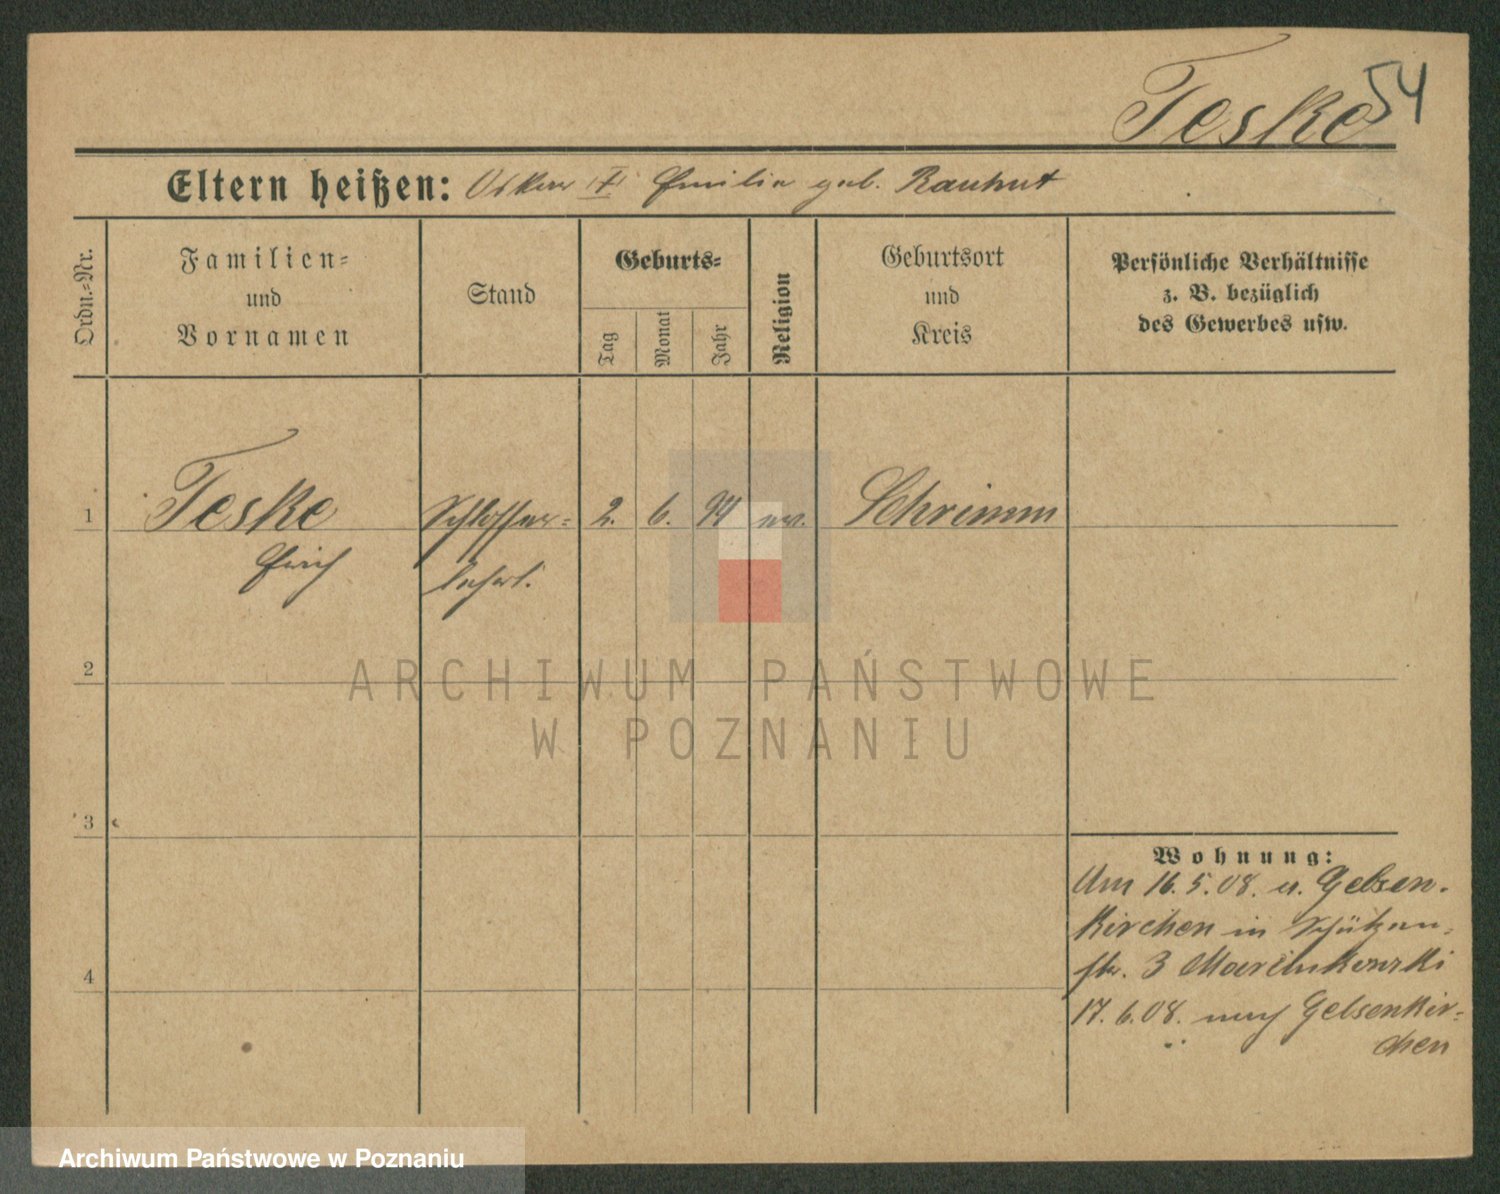 Teske
54
Eltern heißen: Oskar † Emilie geb. Rauhut
Ordn.-Nr.
Familien-
und
Vornamen
Stand
Geburts-
Tag
Monat
Jahr
Religion
Geburtsort
und
Kreis
Persönliche Verhältnisse
z. B. bezüglich
des Gewerbes usw.
1 Teske Schlosser- 2. 6. 94 ev. Schrimm
Erich lehrl.
2
3
4
Wohnung:
Am 16.5.08. v. Gelsen-
kirchen in Schützen-
str. 3 Marcinkowski
17.6.08. nach Gelsenkir-
chen
ARCHIWUM PAŃSTWOWE
W POZNANIU
Archiwum Państwowe w Poznaniu